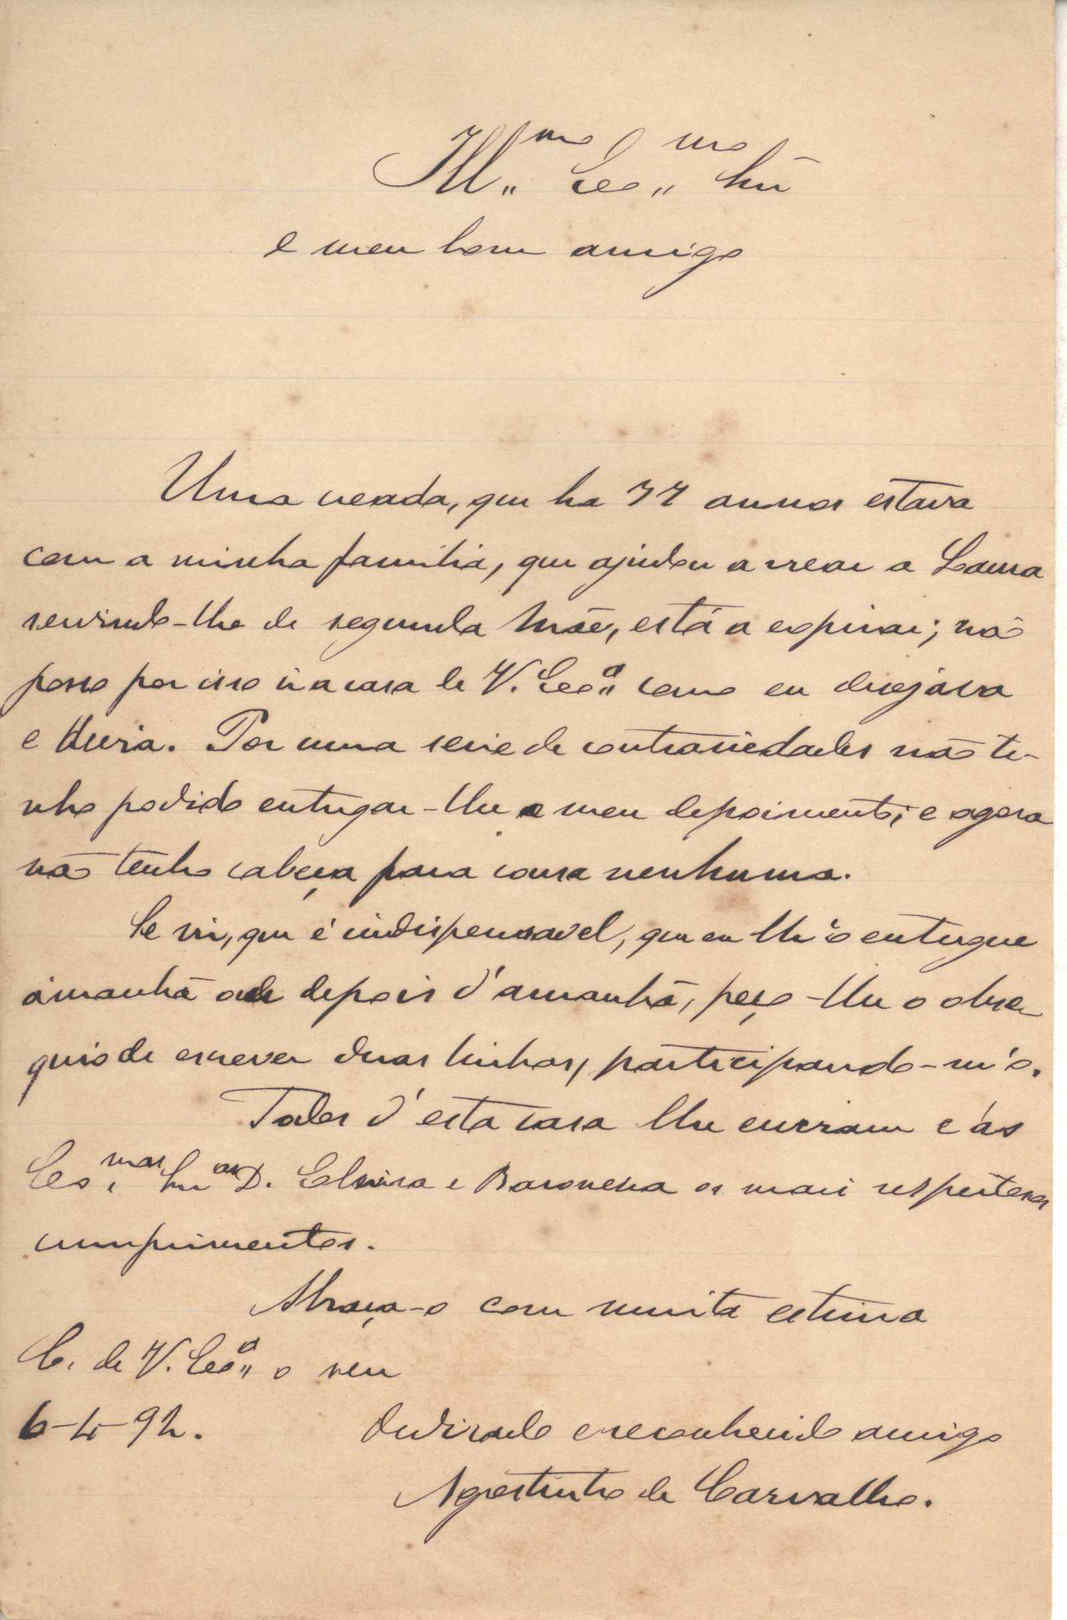 Ill.mo Ex.mo Snr
e meu bom amigo
Uma creada, que ha 27 annos estava
com a minha familia, que ajudou a crear a Laura
servindo-lhe de segunda Mãe, está a expirar; não
posso por isso ir a casa de V. Ex.a como eu desejava
e devia. Por uma serie de contrariedades não te-
nho podido entregar-lhe o meu depoimento; e agora
não tenho cabeça para cousa nenhuma.
Se vir, que é indispensavel, que eu lh'o entregue
ámanhã ou depois d'amanhã, peço-lhe o obse-
quio de escrever duas linhas, participando-m'o.
Todos d'esta casa lhe enviam e ás
Ex.mas Snr.as D. Elvira e Baroneza os mais respeitosos
cumprimentos.
Abraça-o com muita estima
C. de V. Ex.a o seu
6-4-92. dedicado e reconhecido amigo
Agostinho de Carvalho.